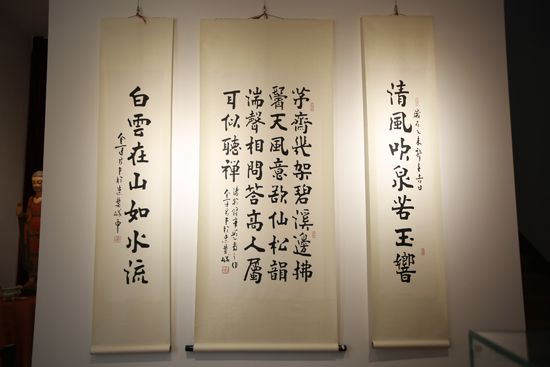 清風吹泉若玉響
茅齋幾架碧溪邊拂
鬢天風意欲仙松韻
湍聲相問答高人屬
耳似聽禪
白雲在山如水流